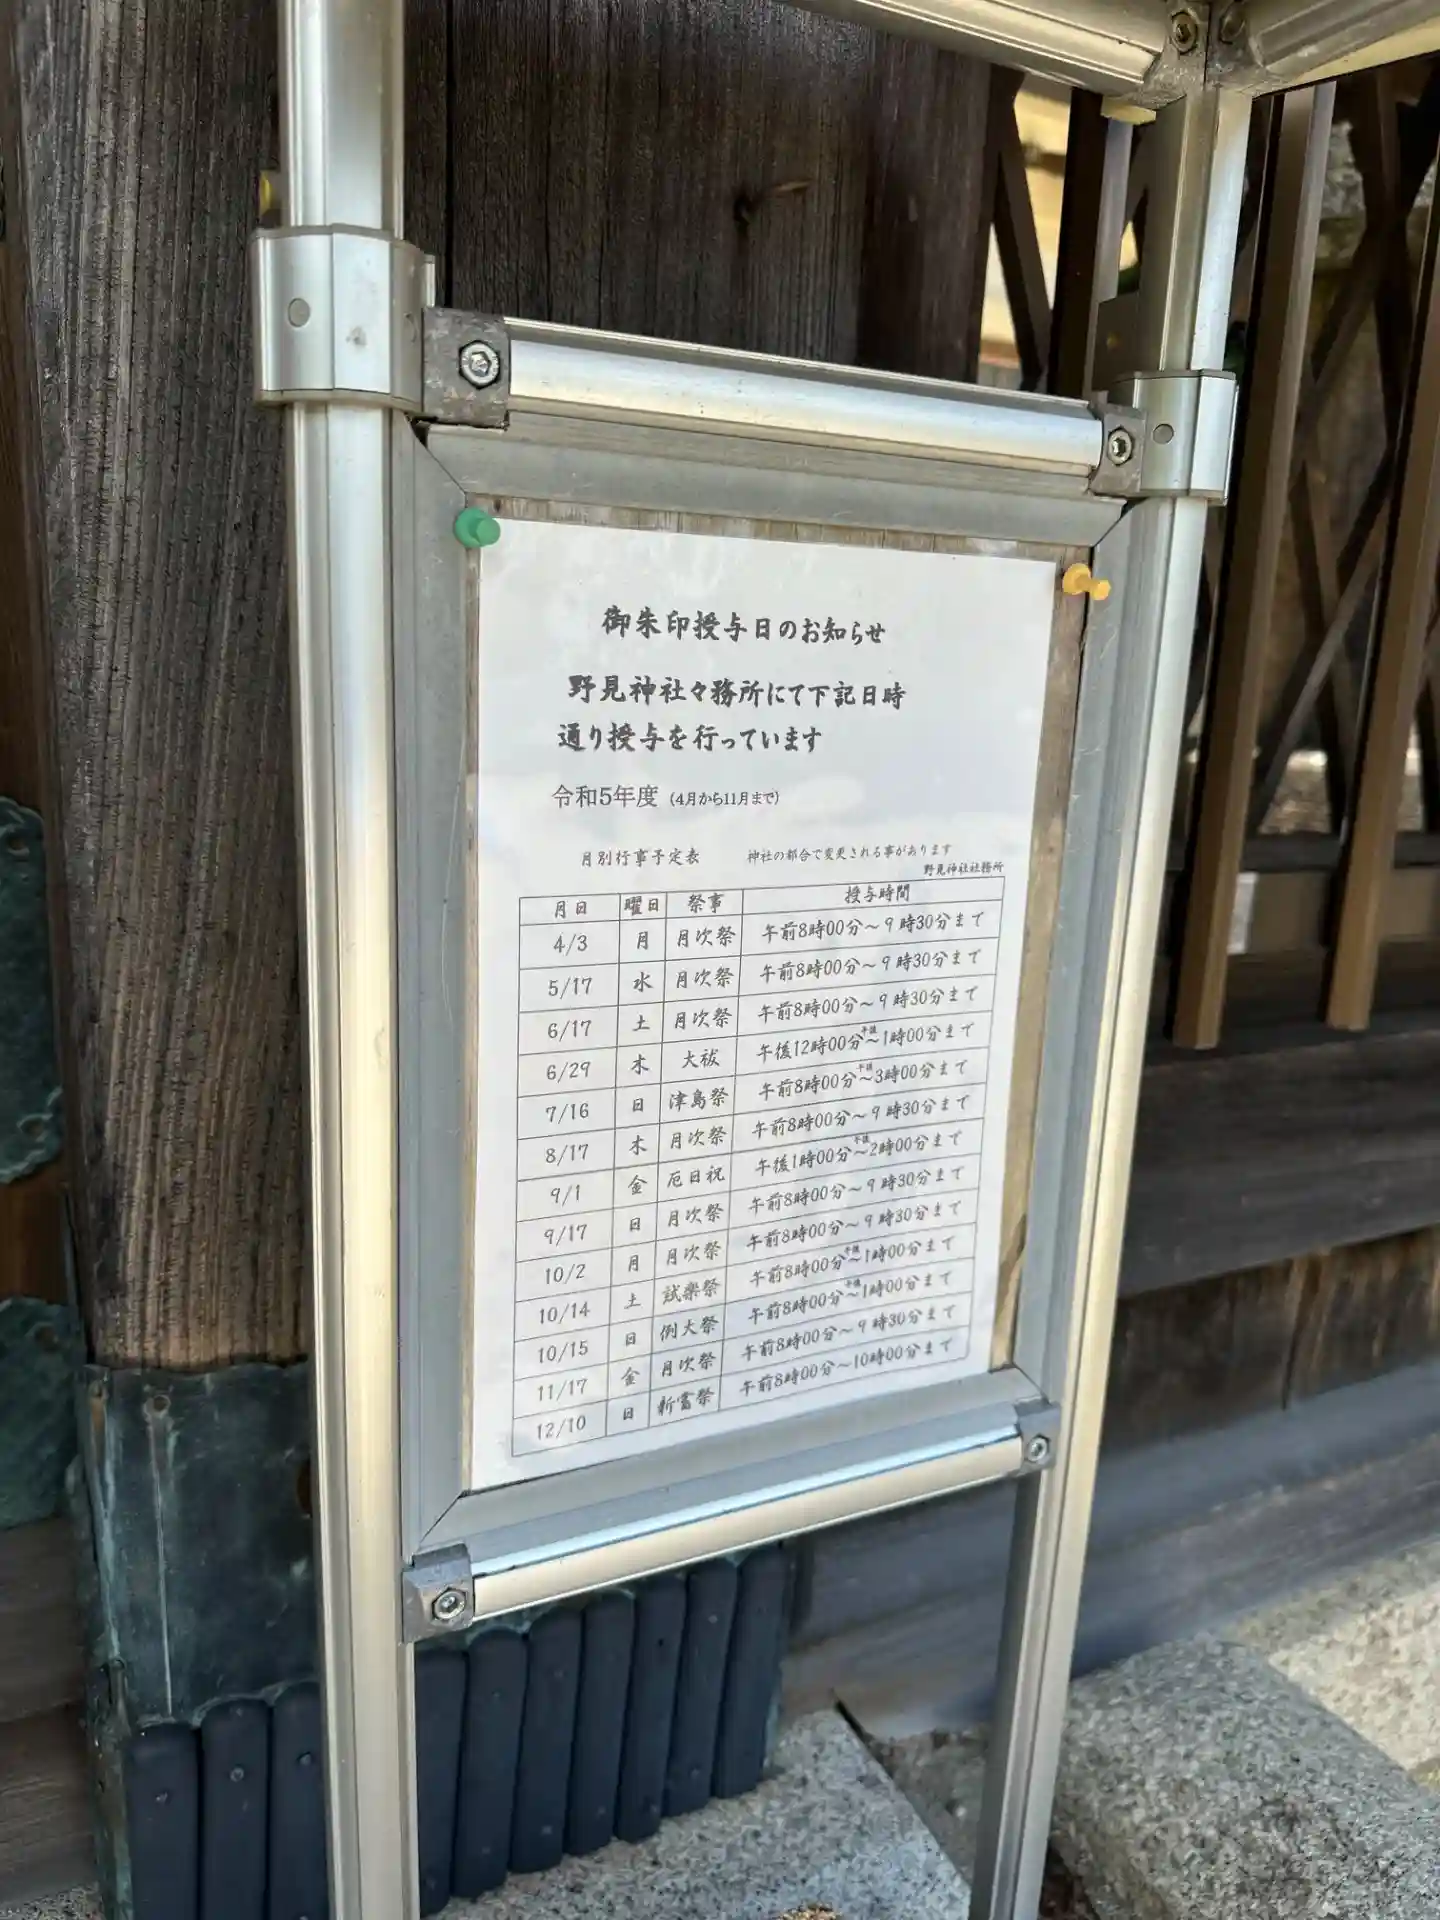 御朱印授与日のお知らせ
野見神社々務所にて下記日時
通り授与を行っています
令和5年度 (4月から11月まで)
月別行事予定表 神社の都合で変更される事があります
野見神社社務所
月日 曜日 祭事 授与時間
4/3 月 月次祭 午前8時00分～9時30分まで
5/17 水 月次祭 午前8時00分～9時30分まで
6/17 土 月次祭 午前8時00分～9時30分まで
6/29 木 大祓 午後12時00分～午後1時00分まで
7/16 日 津島祭 午前8時00分～午後3時00分まで
8/17 木 月次祭 午前8時00分～9時30分まで
9/1 金 厄日祝 午後1時00分～午後2時00分まで
9/17 日 月次祭 午前8時00分～9時30分まで
10/2 月 月次祭 午前8時00分～9時30分まで
10/14 土 試楽祭 午前8時00分～午後1時00分まで
10/15 日 例大祭 午前8時00分～午後1時00分まで
11/17 金 月次祭 午前8時00分～9時30分まで
12/10 日 新嘗祭 午前8時00分～10時00分まで